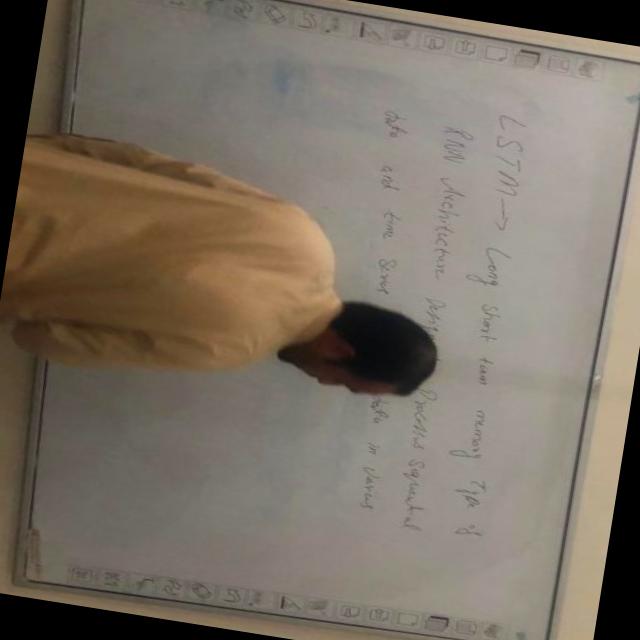 LSTM → Long short term memory Type of
RNN Architecture Process Sequential
data and time in various